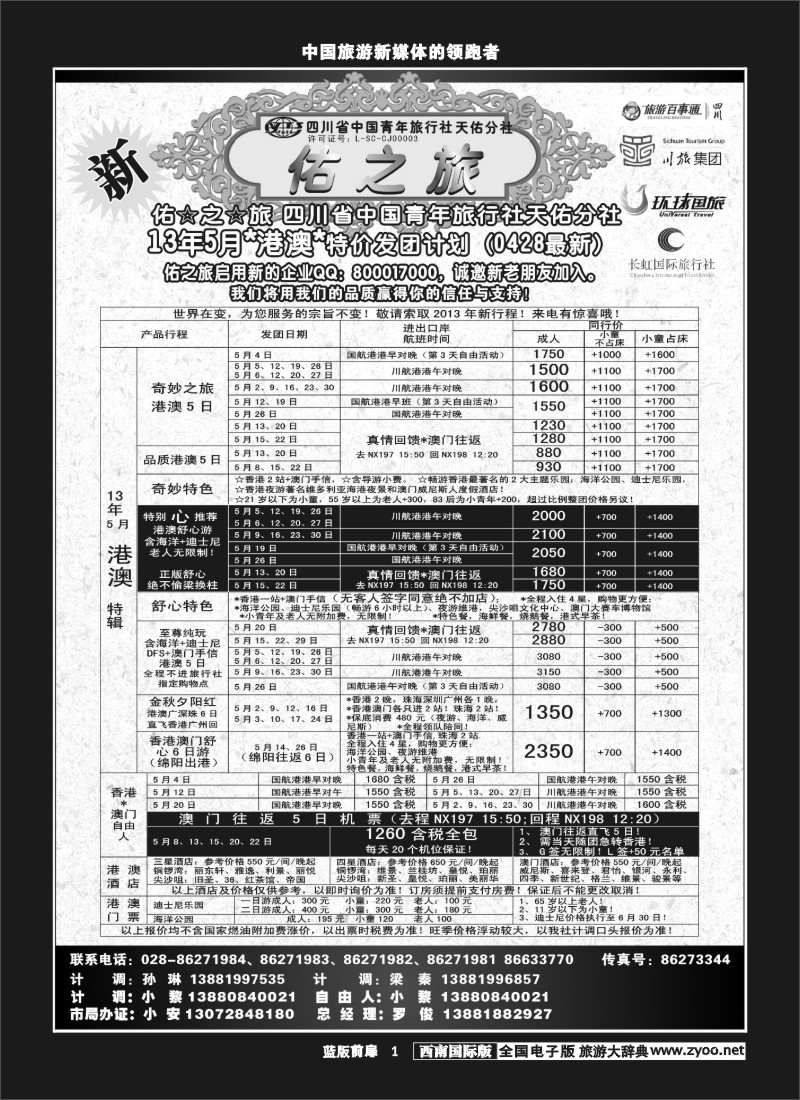 中国旅游新媒体的领跑者
新
四川省中国青年旅行社天佑分社
许可证号：L-SC-CJ00003
佑之旅
旅游百事通 四川
TRAVELING BESTONE
Sichuan Tourism Group
川旅集团
环球国旅
UniVersal Travel
长虹国际旅行社
佑☆之☆旅 四川省中国青年旅行社天佑分社
13年5月*港澳*特价发团计划（0428最新）
佑之旅启用新的企业QQ：800017000，诚邀新老朋友加入。
我们将用我们的品质赢得你的信任与支持！
世界在变，为您服务的宗旨不变！敬请索取 2013 年新行程！来电有惊喜哦！
产品行程 发团日期 进出口岸 航班时间 同行价 成人 小童不占床 小童占床
13年5月 港澳 特辑
奇妙之旅 港澳5日
5月4日 国航港港早对晚（第3天自由活动） 1750 +1000 +1600
5月5、12、19、26日
5月6、12、20、27日 川航港港午对晚 1500 +1100 +1700
5月2、9、16、23、30 川航港港午对晚 1600 +1100 +1700
5月12、19日 国航港港早班（第3天自由活动） 1550 +1100 +1700
5月26日 国航港港午对晚 +1100 +1700
5月13、20日 真情回馈*澳门往返 1230 +1100 +1700
5月15、22日 去NX197 15:50 回NX198 12:20 1280 +1100 +1700
品质港澳5日
5月13、20日 880 +1100 +1700
5月8、15、22日 930 +1100 +1700
奇妙特色
☆香港2站+澳门手信，☆含导游小费。 ☆畅游香港最著名的2大主题乐园，海洋公园、迪士尼乐园，
☆香港夜游著名维多利亚海港夜景和澳门威尼斯人度假酒店！
☆21岁以下为小童，55岁以上为老人+300，83后为小青年+200，超过比例整团价格另议！
特别心推荐
港澳舒心游
含海洋+迪士尼
老人无限制！
正版舒心
绝不偷梁换柱
5月5、12、19、26日
5月6、12、20、27日 川航港港午对晚 2000 +700 +1400
5月9、16、23、30日 川航港港午对晚 2100 +700 +1400
5月19日 国航港港早对晚（第3天自由活动） 2050 +700 +1400
5月26日 国航港港午对晚
5月13、20日 真情回馈*澳门往返 1680 +700 +1400
5月15、22日 去NX197 15:50 回NX198 12:20 1750 +700 +1400
舒心特色
*香港一站+澳门手信（无客人签字同意绝不加店）； *全程入住4星，购物更方便；
*海洋公园、迪士尼乐园（畅游6小时以上）、夜游维港，尖沙咀文化中心、澳门大赛车博物馆
*小青年及老人无附加费，无限制！ *特色餐，海鲜餐，烧鹅餐，港式早茶！
至尊纯玩
含海洋+迪士尼
DFS+澳门手信
港澳5日
全程不进旅行社
指定购物点
5月20日 真情回馈*澳门往返 2780 -300 +500
5月15、22、29日 去NX197 15:50 回NX198 12:20 2880 -300 +500
5月5、12、19、26日
5月6、12、20、27日 川航港港午对晚 3080 -300 +500
5月9、16、23、30日 川航港港午对晚 3150 -300 +500
5月26日 国航港港午对晚（第3天自由活动） 3080 -300 +500
金秋夕阳红
港澳广深珠6日
直飞香港广州回
5月2、9、12、16日
5月3、10、17、24日
*香港2晚，珠海深圳广州各1晚；
*香港澳门各只进2站！珠海2站！
*保底消费480元（夜游、海洋、威尼斯） *全程领队陪同！
1350 +700 +1300
香港澳门舒心6日游
（绵阳出港）
5月14、26日
（绵阳往返6日）
香港一站+澳门手信，珠海2站.
全程入住4星，购物更方便；
海洋公园、夜游维港
小青年及老人无附加费，无限制！
特色餐，海鲜餐，烧鹅餐，港式早茶！
2350 +700 +1400
香港*澳门自由人
5月4日 国航港港早对晚 1680含税 5月26日 国航港港午对晚 1550含税
5月12日 国航港港早对午 1550含税 5月5、13、20、27日 川航港港午对晚 1550含税
5月20日 国航港港早对晚 1550含税 5月2、9、16、23、30 川航港港午对晚 1600含税
澳门往返5日机票（去程NX197 15:50;回程NX198 12:20）
5月8、13、15、20、22日
1260含税全包
每天20个机位保证！
1、 澳门往返直飞5日！
2、 需当天随团急转香港！
3、 G签无限制！L签+50元名单
港澳酒店
三星酒店：参考价格550元/间/晚起
铜锣湾：丽东轩、雅逸、利景、丽悦
尖沙咀：旧圣、36、红茶馆、帝国
四星酒店：参考价格650元/间/晚起
铜锣湾：维景、兰桂坊、皇悦、珀丽
尖沙咀：新圣、皇悦、珀丽、美丽华
澳门酒店：参考价格550元/间/晚起
威尼斯、喜来登、君怡、银河、永利、
四季、新世纪、格兰、维景、骏景等
以上酒店及价格仅供参考，以即时询价为准！订房须提前支付房费！保证后不能更改取消！
港澳门票
迪士尼乐园
一日游成人：300元 小童：220元 老人：100元
二日游成人：400元 小童：300元 老人：180元
海洋公园 成人：195元 小童120 老人100
1、65岁以上老人！
2、11岁以下为小童！
3、迪士尼价格执行至6月30日！
以上报价均不含国家燃油附加费涨价，以出票时税费为准！旺季价格浮动较大，以我社计调口头报价为准！
联系电话：028-86271984、86271983、86271982、86271981 86633770 传真号：86273344
计 调：孙 琳 13881997535 计 调：梁 秦 13881996857
计 调：小 黎 13880840021 自 由 人：小 黎 13880840021
市局办证：小 安 13072848180 总 经 理：罗 俊 13881882927
蓝版前扉 1 西南国际版 全国电子版 旅游大辞典 www.zyoo.net